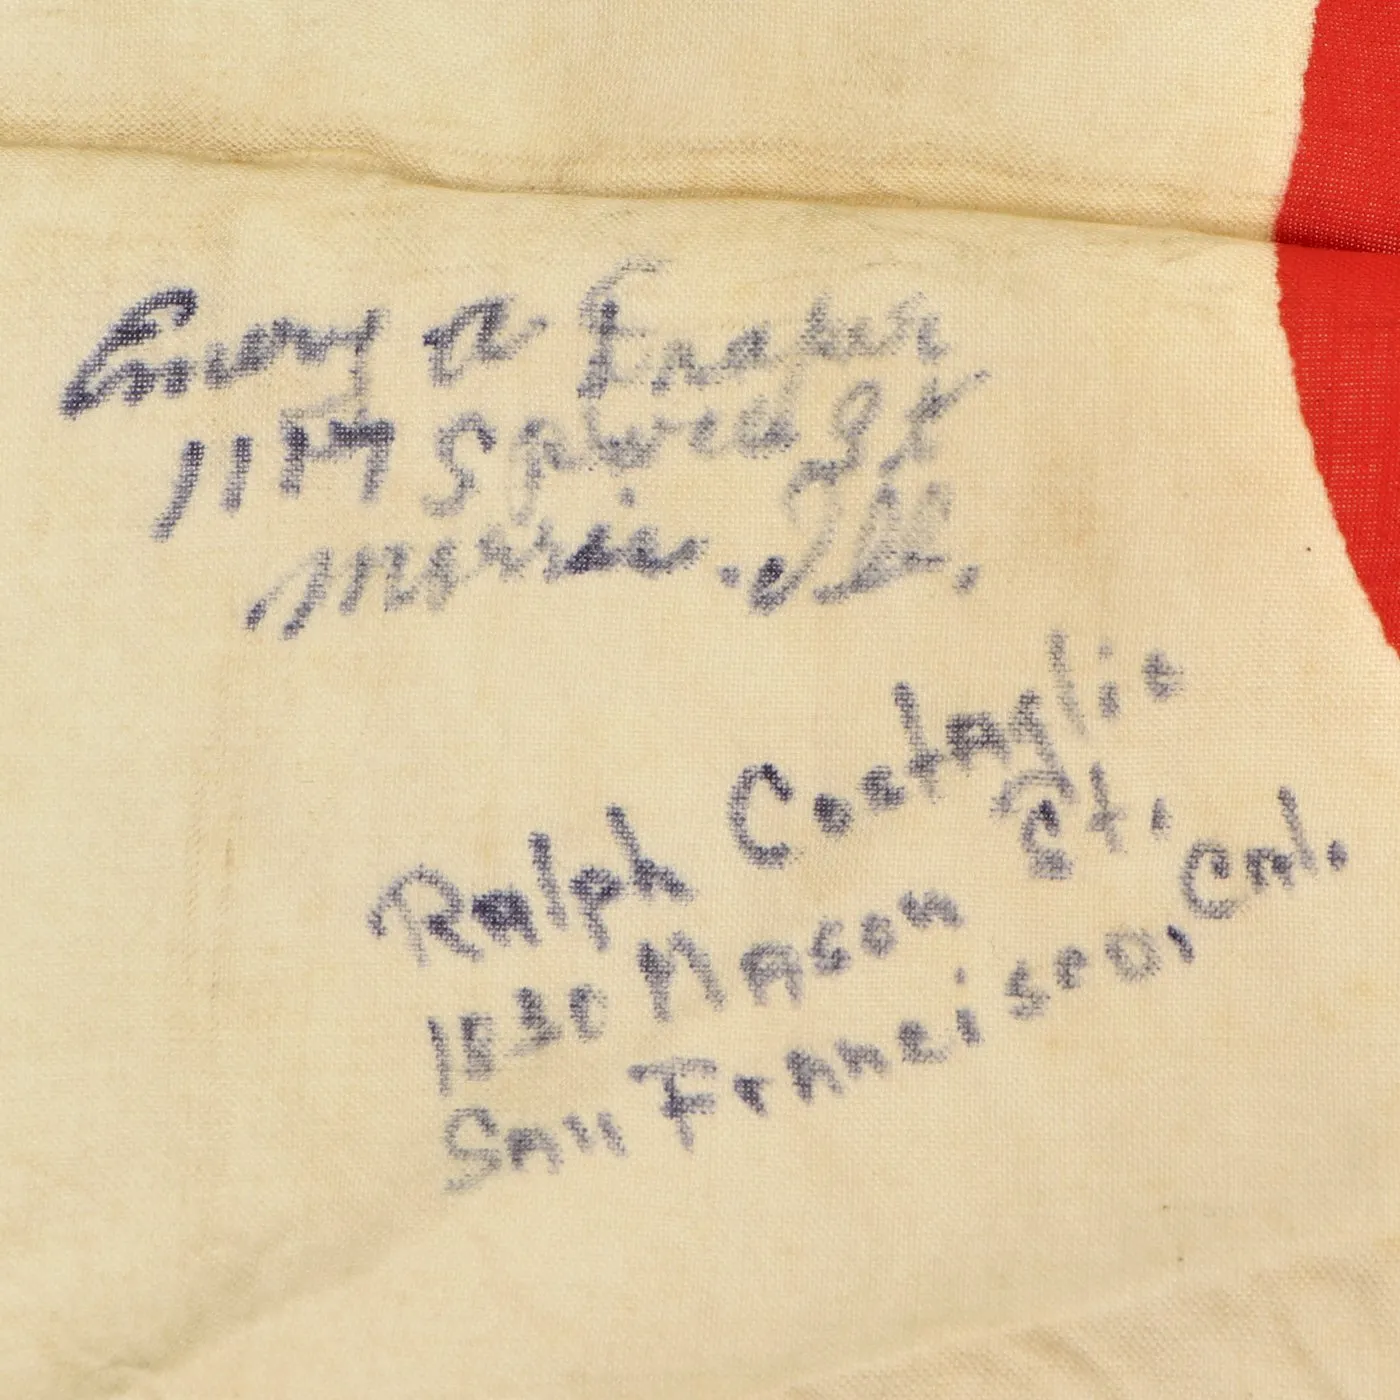 Emory A. Fraher
St
Morris. Ill.
Ralph Costaglio
1030 Mason St.
San Francisco, Cal.